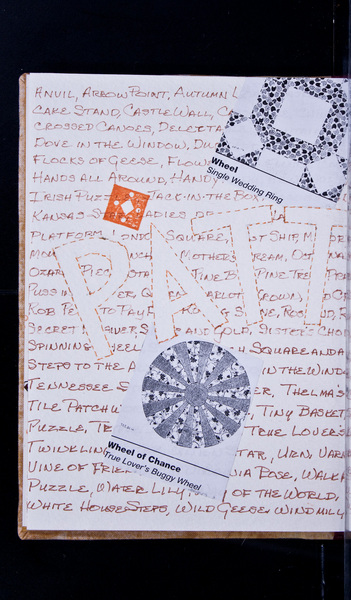 Anvil, Arrow Point, Autumn L
Cake Stand, Castle Wall, C
Crossed Canoes, Delecta
Dove in the Window, Du
Flocks of Geese, Flow
Hands All Around, Handy
Irish Puz Jack-in-the-Box
Kansas Ladies
Platform, London Square, st Ship, M
Mother's Dream, Oct
Ozark Pine B Pine Tre
Puss in
Rob Pe to Pay P
Secret and Gold, Sister's Choi
Spinning eel Square and a
Steps to the A in the Windo
Tennessee S er, Thelma's
Tile Patchw Tiny Basket
Puzzle, Tr True Lover's
Twinklin tar, W
Vine of Frie ia Rose, Walk
Puzzle, Water Lily, of the World,
White House Steps, Wild Geese, Windmill
PATT
Wheel
Single Wedding Ring
Wheel of Chance
True Lover's Buggy Wheel